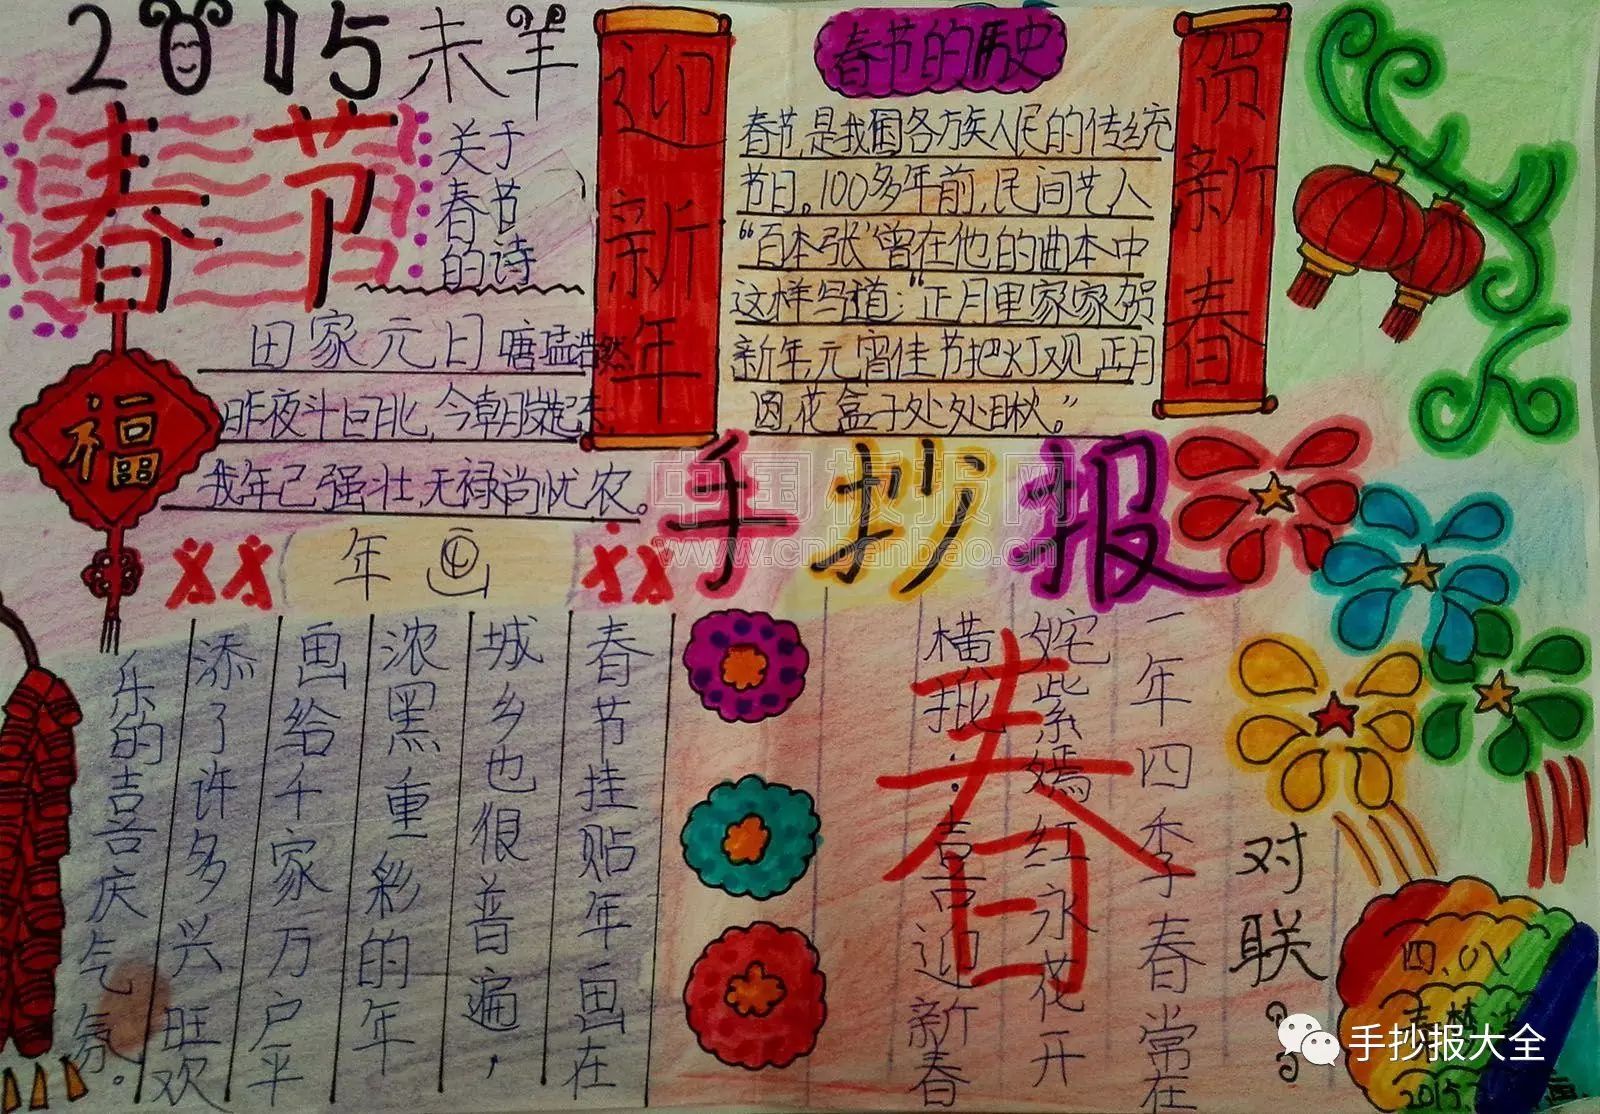 2015未羊
春节
关于
春节
的诗
田家元日 唐孟浩然
昨夜斗回北,今朝岁起东,
我年已强壮,无禄尚忧农。
迎新年
春节的历史
春节,是我国各方族人民的传统
节日。100多年前,民间艺人
“百本张”曾在他的曲本中
这样写道:“正月里家家贺
新年元宵佳节把灯观正月
圆,花盒子处处瞅。”
贺新春
福
手抄报
年画
春节挂贴年画在
城乡也很普遍,
浓黑重彩的年
画给千家万户平
添了许多兴旺欢
乐的喜庆气氛。
春
对联:
一年四季春常在
姹紫嫣红永花开
横批:喜迎新春
四、八
2015.
中国板报网
www.cnbanbao.cn
手抄报大全